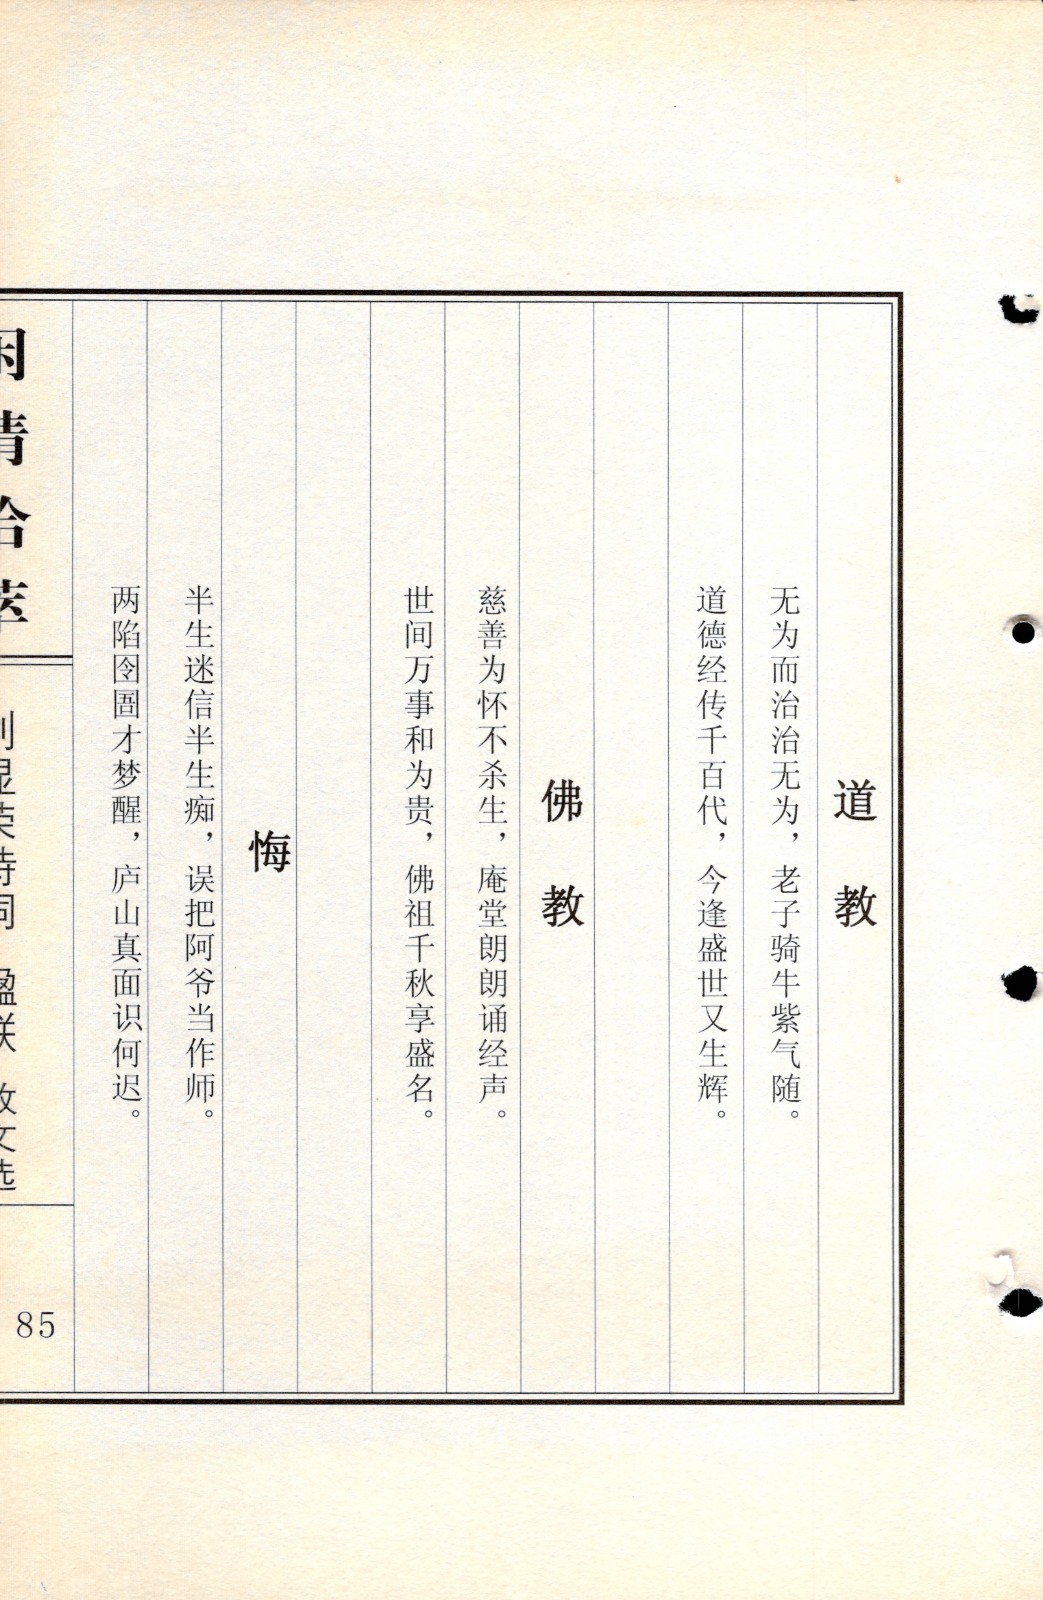 道教
无为而治治无为，老子骑牛紫气随。
道德经传千百代，今逢盛世又生辉。
佛教
慈善为怀不杀生，庵堂朗朗诵经声。
世间万事和为贵，佛祖千秋享盛名。
悔
半生迷信半生痴，误把阿爷当作师。
两陷囹圄才梦醒，庐山真面识何迟。
情拾萃
诗词 楹联 散文选
85